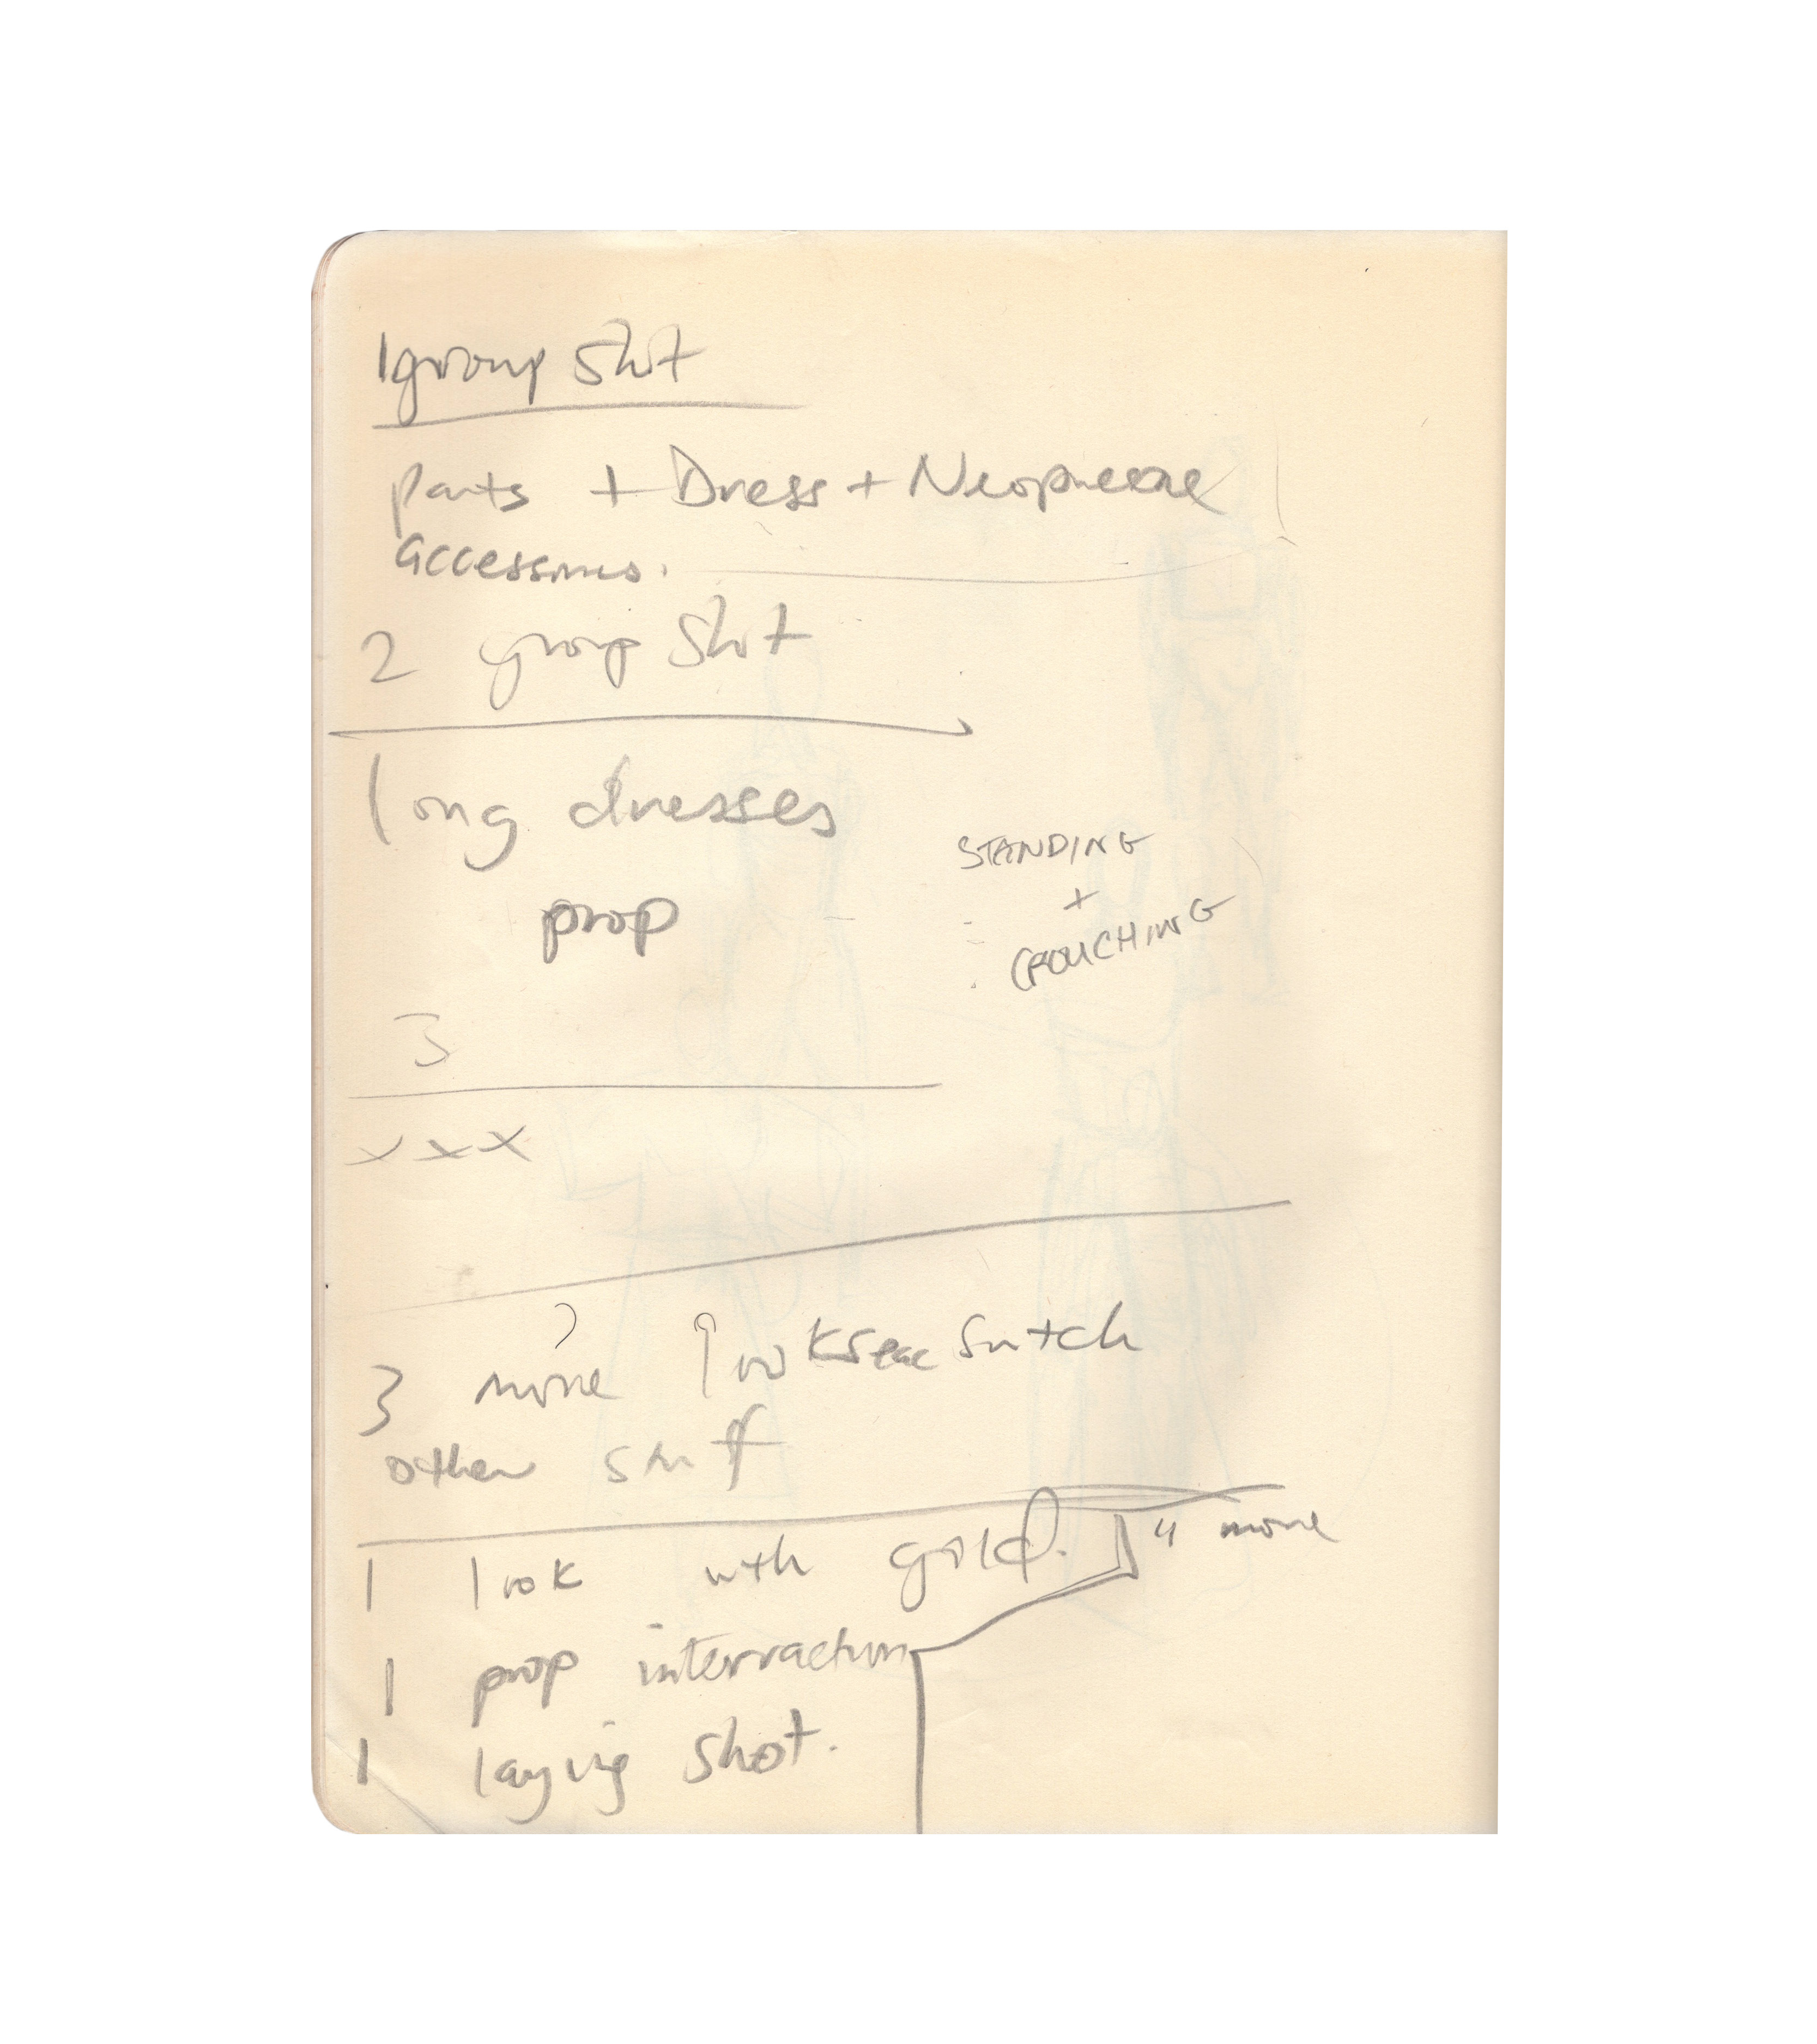 1 group shot
Pants + Dress + Neoprene
accessories.
2 group shot
long dresses
prop
STANDING
+
CROUCHING
3
x x x
3 more looks switch
other stuff
1 look with gold.
4 more
1 prop interraction
1 laying shot.